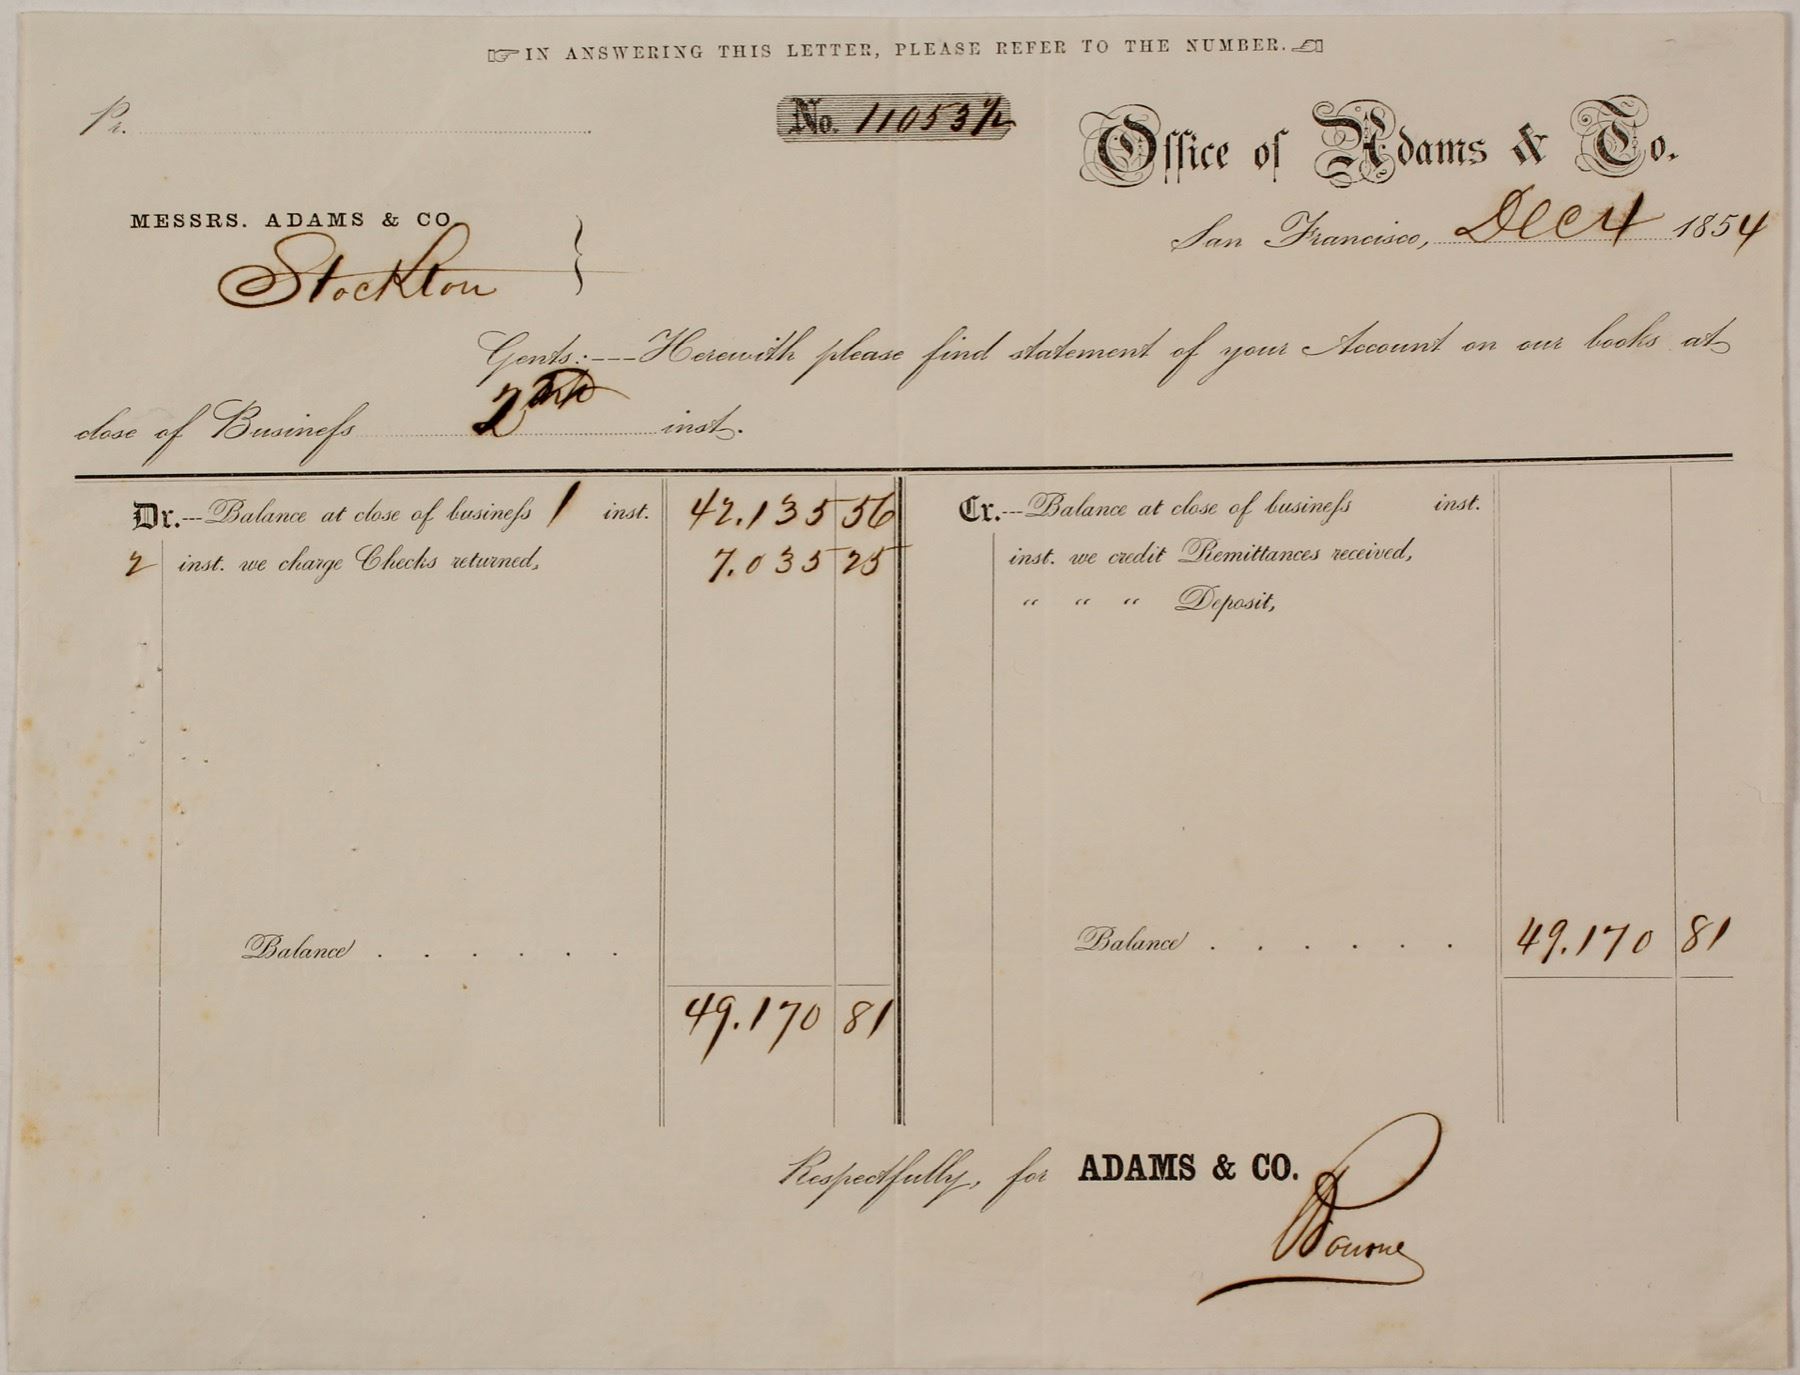 IN ANSWERING THIS LETTER, PLEASE REFER TO THE NUMBER.
Pr.
No. 11053½
Office of Adams & Co.
San Francisco, Dec 4 1854
MESSRS. ADAMS & CO
Stockton
Gents:---Herewith please find statement of your Account on our books at
close of Business 2nd inst.
Dr.---Balance at close of business 1 inst. 42.135 56
2 inst. we charge Checks returned, 7.035 25
Cr.---Balance at close of business inst.
inst. we credit Remittances received,
" " " Deposit,
Balance . . . . . .
49.170 81
Balance . . . . . . 49.170 81
Respectfully, for ADAMS & CO.